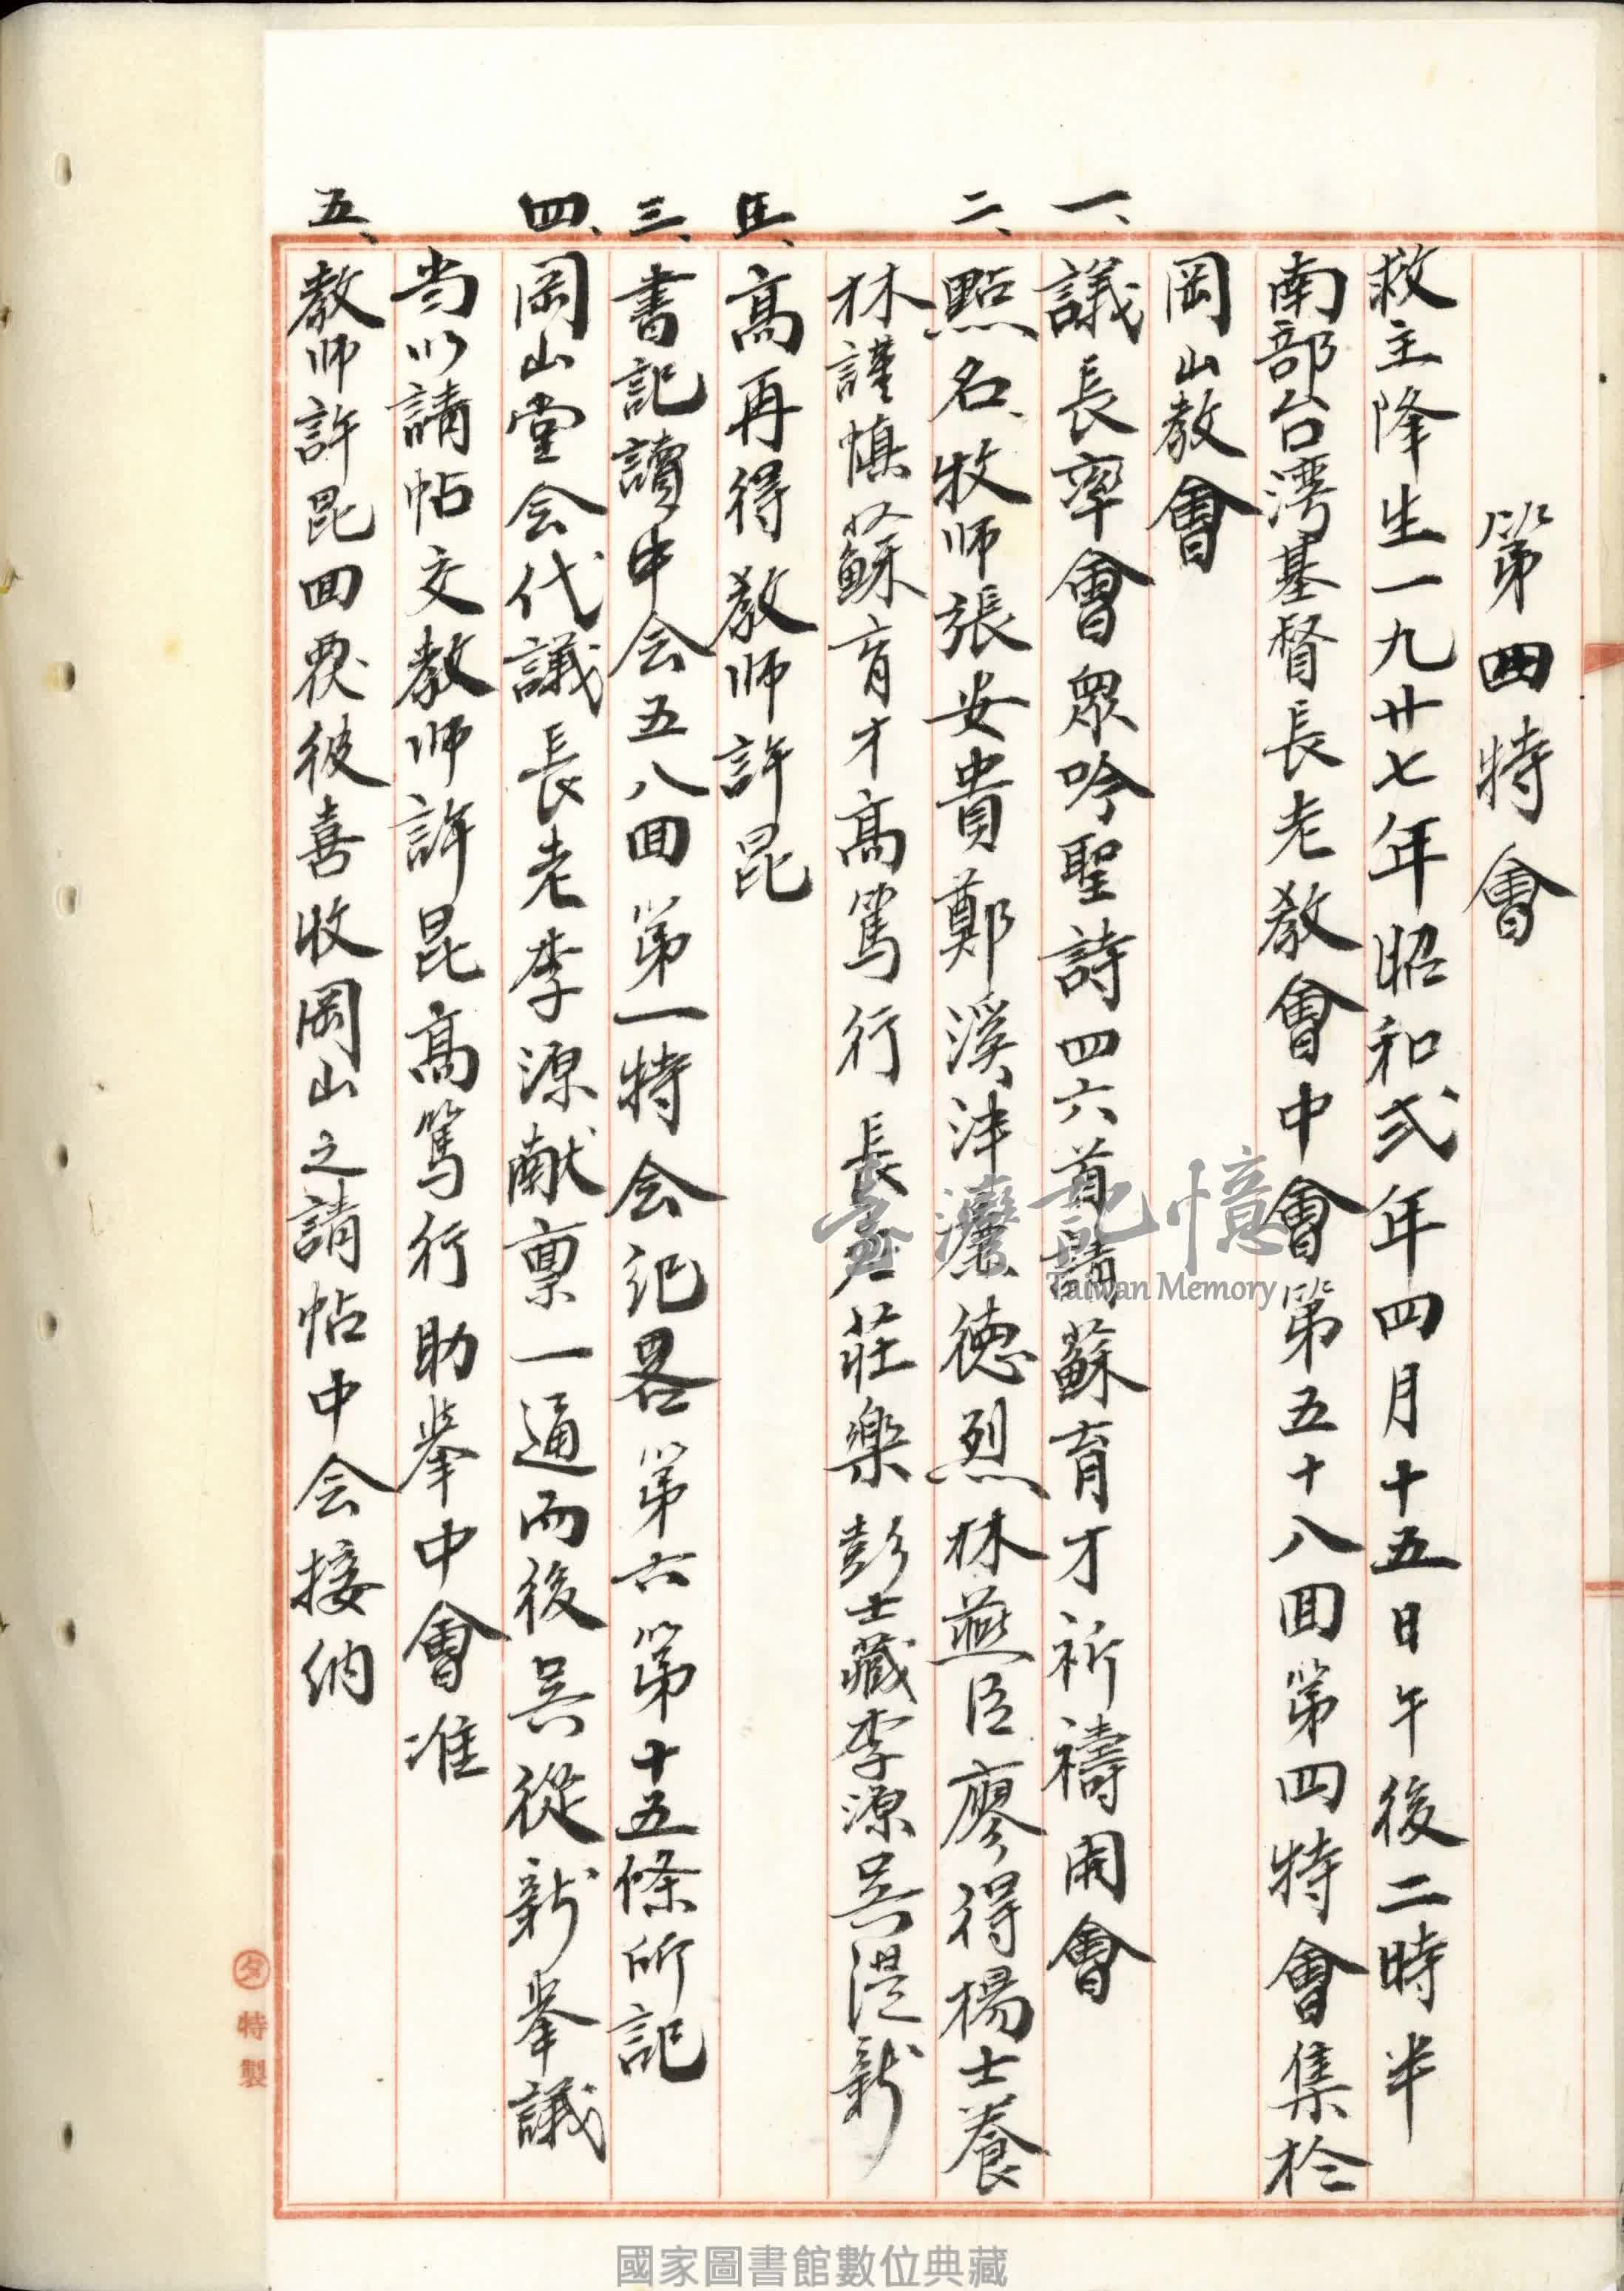 第四特會
救主降生一九廿七年昭和弍年四月十五日午後二時半
南部台湾基督長老教會中會第五十八回第四特會集於
岡山教會
一、議長率會眾吟聖詩四六首請蘇育才祈禱開會
二、點名、牧师張安貴鄭溪泮 德烈林燕臣廖得楊士養
林謹慎蘇育才高篤行 長老莊樂彭士藏李源吳港新
正、高再得教师許昆
三、書記讀中会五八回第一特会記畧第六第十五條所記
四、岡山堂会代議長老李源献稟一通而後吳從新舉議
尚以請帖交教师許昆高篤行助舉中會准
五、教师許昆回覆彼喜收岡山之請帖中会接納
臺灣記憶
Taiwan Memory
タ特製
國家圖書館數位典藏